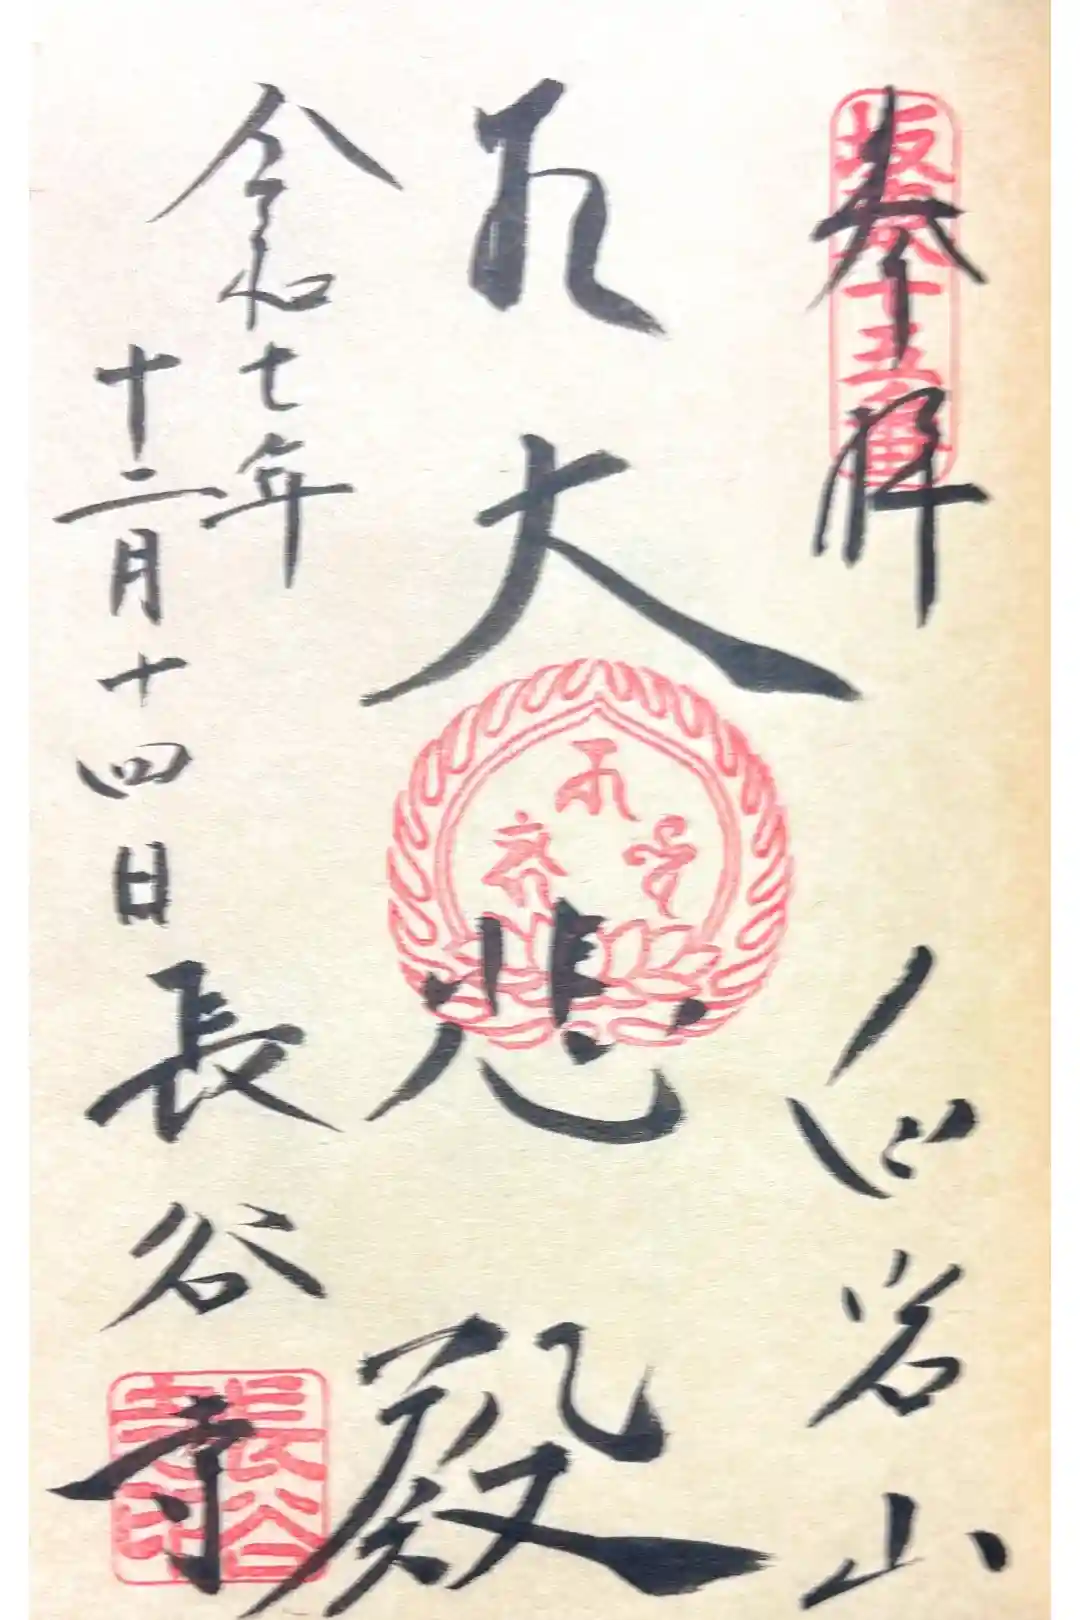 奉拝
坂東十五番
白岩山
大悲殿
令和七年
十二月十四日
長谷寺
長谷寺印